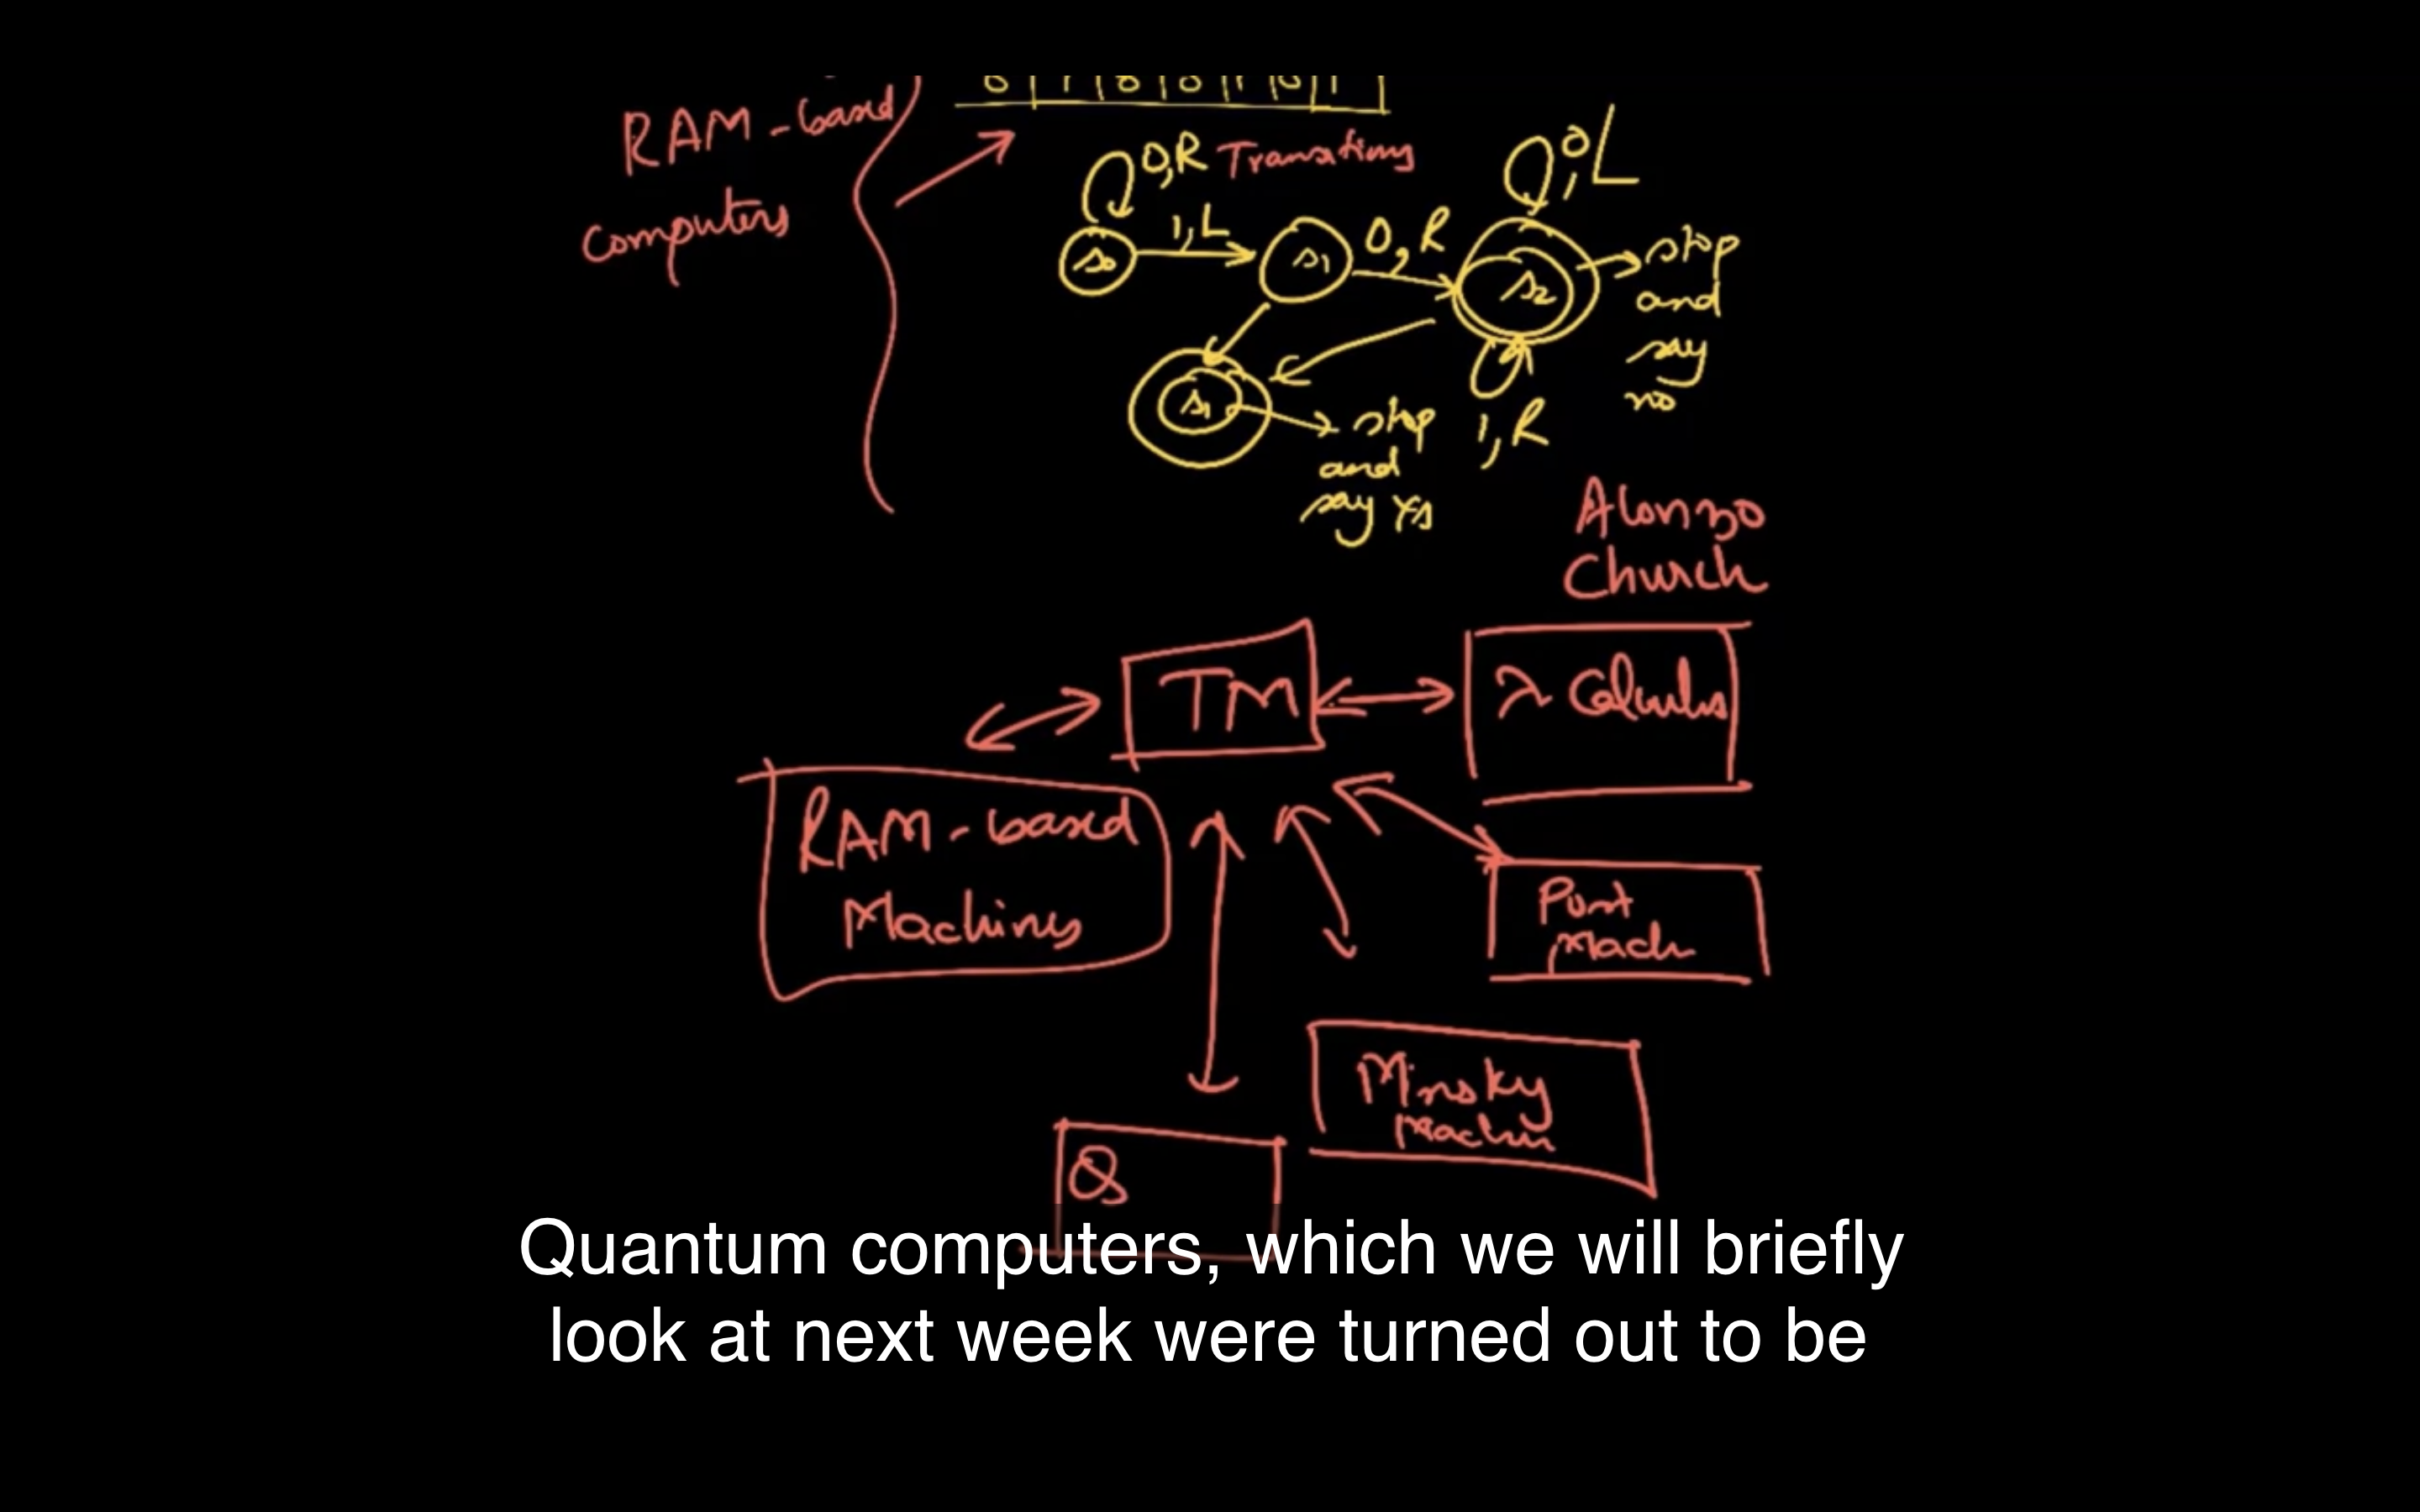 0 1 0 0 1 0 1
RAM-based
computers
0,R Transitions
0,L
1,L
0,R
s0
s1
s2
stop
and
say
no
s1
stop
and
say Yes
1,R
Alonzo
Church
TM
λ Calculus
RAM-based
Machines
Post
Mach
Minsky
Machine
Q
Quantum computers, which we will briefly
look at next week were turned out to be